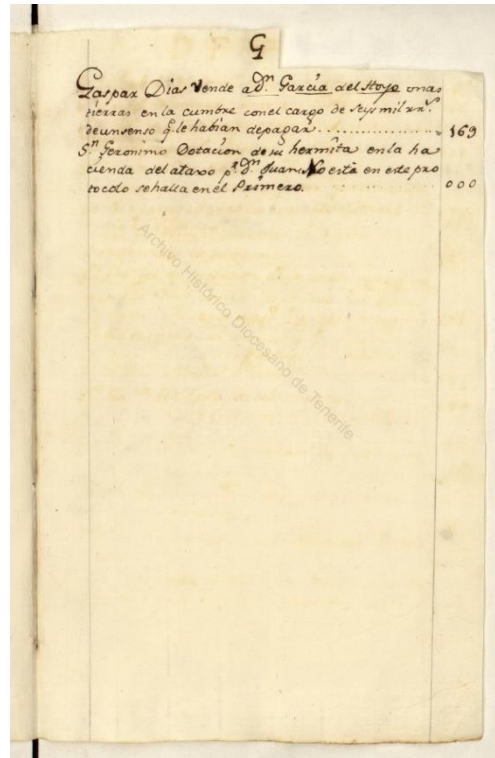 G
Gaspar Dias Vende a Dn. Garcia del Hoyo unas
tierras en la cumbre con el cargo de seys mil rrs.
de un senso q. le habian de pagar . . . . . . . . . . . . . . . 169
Sn. Geronimo Dotacion de su hermita en la ha
cienda del ataxo pr. Dn. Juan No està en este pro
tocolo se halla en el Primero. 000
Archivo Histórico Diocesano de Tenerife